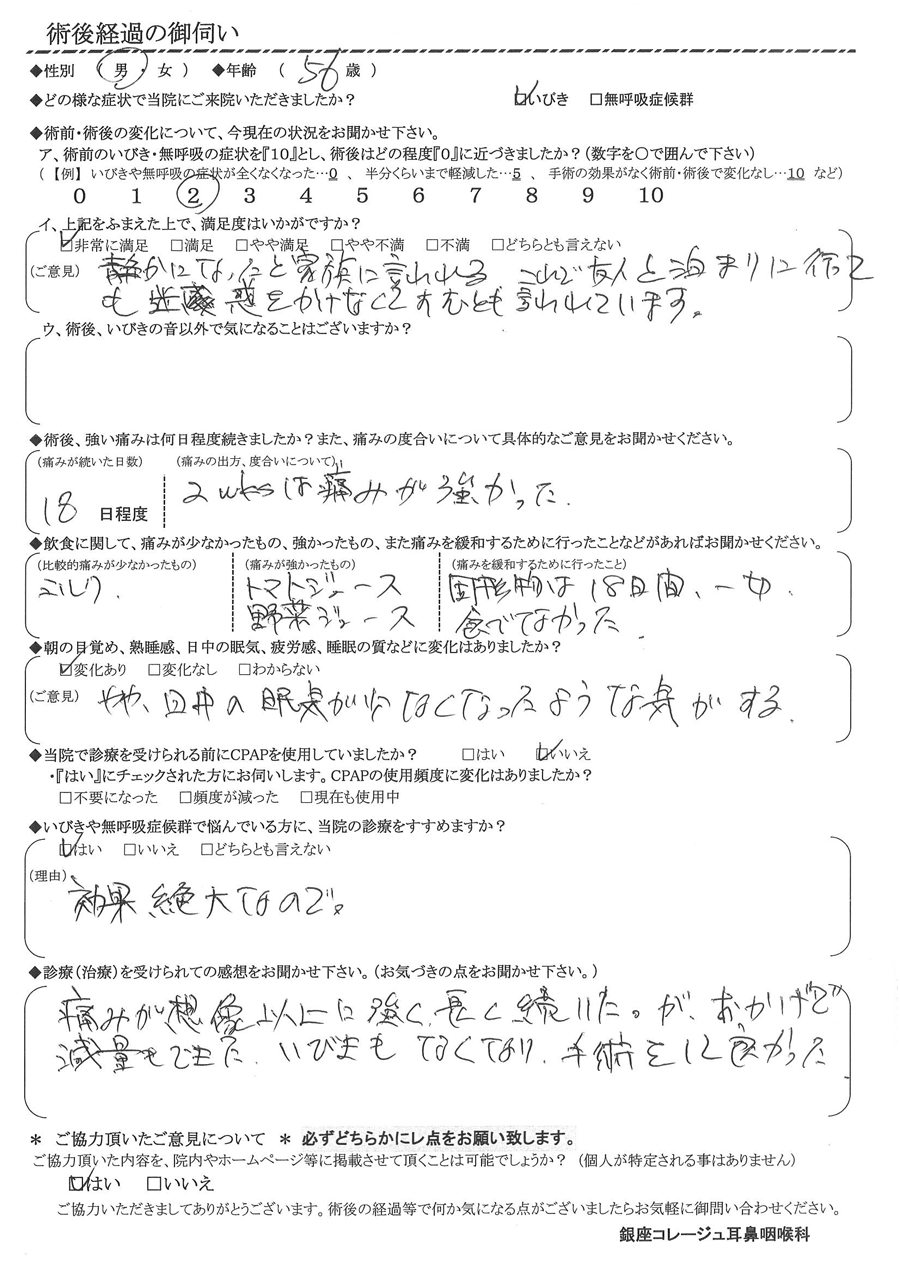 術後経過の御伺い
◆性別 （ 男 ・ 女 ） ◆年齢 （ 56 歳 ）
◆どの様な症状で当院にご来院いただきましたか？ ☑いびき □無呼吸症候群
◆術前・術後の変化について、今現在の状況をお聞かせ下さい。
ア、術前のいびき・無呼吸の症状を『10』とし、術後はどの程度『0』に近づきましたか？（数字を〇で囲んで下さい）
（【例】 いびきや無呼吸の症状が全くなくなった…0 、 半分くらいまで軽減した…5 、 手術の効果がなく術前・術後で変化なし…10 など）
0 1 2 3 4 5 6 7 8 9 10
イ、上記をふまえた上で、満足度はいかがですか？
☑非常に満足 □満足 □やや満足 □やや不満 □不満 □どちらとも言えない
（ご意見） 静かになったと家族に言われる これで友人と泊まりに行って
も 惑をかけなくてすむとも言われています。
ウ、術後、いびきの音以外で気になることはございますか？
◆術後、強い痛みは何日程度続きましたか？また、痛みの度合いについて具体的なご意見をお聞かせください。
（痛みが続いた日数） （痛みの出方、度合いについて）
18 日程度 2 wksは痛みが強かった.
◆飲食に関して、痛みが少なかったもの、強かったもの、また痛みを緩和するために行ったことなどがあればお聞かせください。
（比較的痛みが少なかったもの） （痛みが強かったもの） （痛みを緩和するために行ったこと）
トマトジュース 固形物は18日間、一切.
野菜ジュース 食べてなかった.
◆朝の目覚め、熟睡感、日中の眠気、疲労感、睡眠の質などに変化はありましたか？
☑変化あり □変化なし □わからない
（ご意見） やや、日中の眠気が少なくなったような気がする.
◆当院で診療を受けられる前にCPAPを使用していましたか？ □はい ☑いいえ
・『はい』にチェックされた方にお伺いします。CPAPの使用頻度に変化はありましたか？
□不要になった □頻度が減った □現在も使用中
◆いびきや無呼吸症候群で悩んでいる方に、当院の診療をすすめますか？
☑はい □いいえ □どちらとも言えない
（理由）
効果絶大なので。
◆診療（治療）を受けられての感想をお聞かせ下さい。（お気づきの点をお聞かせ下さい。）
痛みが想像以上に強く、長く続いた。が、おかげで
減量もできた. いびきもなくなり、手術をして良かった
＊ ご協力頂いたご意見について ＊ 必ずどちらかにレ点をお願い致します。
ご協力頂いた内容を、院内やホームページ等に掲載させて頂くことは可能でしょうか？ （個人が特定される事はありません）
☑はい □いいえ
ご協力いただきましてありがとうございます。術後の経過等で何か気になる点がございましたらお気軽に御問い合わせください。
銀座コレージュ耳鼻咽喉科